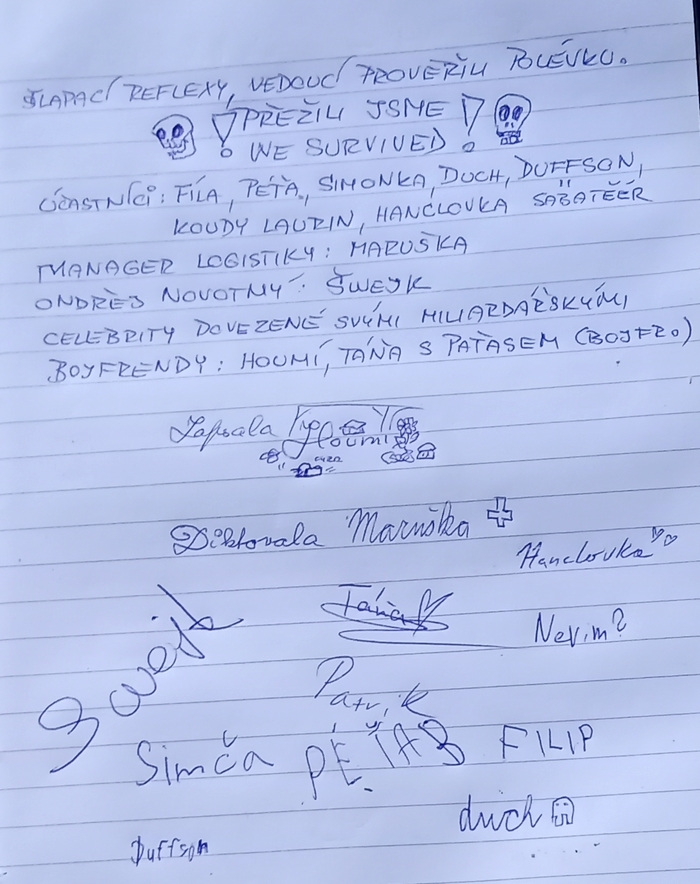 ŠLAPACÍ REFLEXY, VEDOUCÍ PROVĚŘILI POLÉVKU.
! PŘEŽILI JSME !
WE SURVIVED
ÚČASTNÍCI: FÍLA, PÉŤA, SIMONKA, DUCH, DUFFSON,
KOUDY LAURIN, HANCLOVKA SÄBATĚĚR
MANAGER LOGISTIKY: MARUŠKA
ONDŘEJ NOVOTNÝ: ŠWEJK
CELEBRITY DOVEZENÉ SVÝMI MILIARDÁŘSKÝMI
BOJFRENDY: HOUMÍ, TÁŇA S PAŤASEM (BOJFR.)
Zapsala Houmi
Diktovala Maruška
Hanclovka
Švejk
Táňa
Nevim?
Patrik
Simča PÉŤA FILIP
duch
Duffson